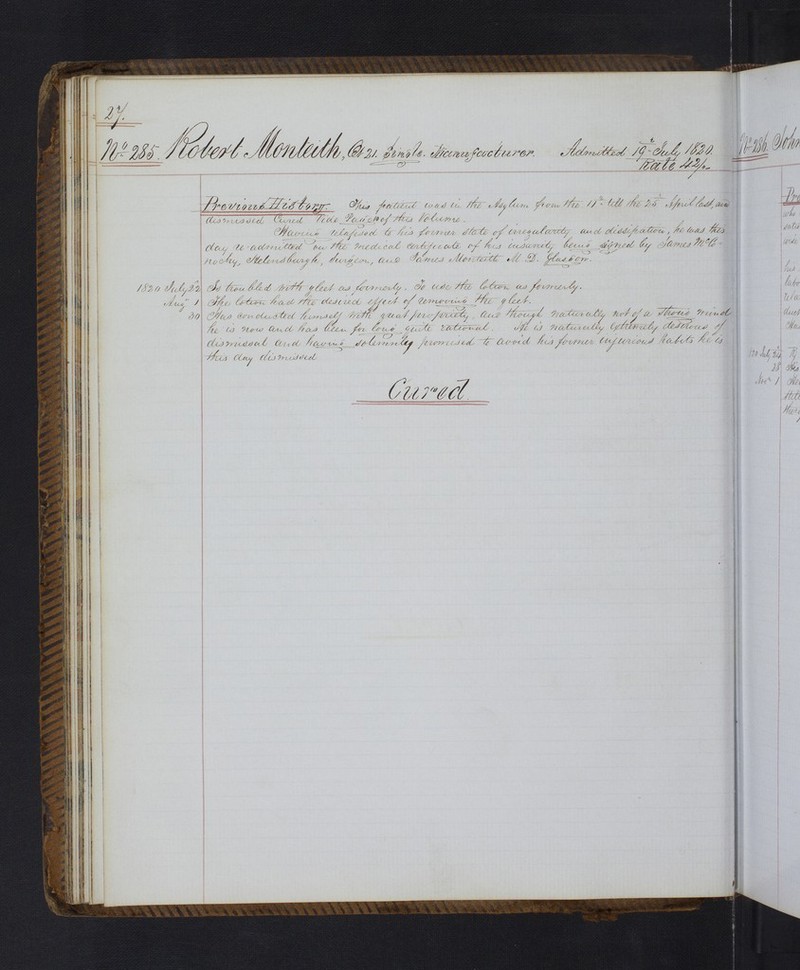 27.
No. 285. Robert Monteith, Æt 21. Single. Manufacturer. Admitted 19th July 1820
Rate 42/-
Previous History. This patient was in the Asylum from the till the 25th April last, and
dismissed Cured Vide Page of this Volume.
Having relapsed to his former state of irregularity and dissipation, he was this
day re-admitted on the medical certificate of his insanity being signed by James
Helensburgh, Surgeon, and James Monteith M.D. Glasgow.
1820 July 22 Is troubled with gleet as formerly. To use the lotion as formerly.
Aug 1 The lotion had the desired effect of removing the gleet.
30 Has conducted himself with great propriety, and though naturally not of a strong mind
he is now and has been for long quite rational. He is naturally extremely desirous of
dismissal and having solemnly promised to avoid his former injurious habits he is
this day dismissed
Cured.
No. 286. John